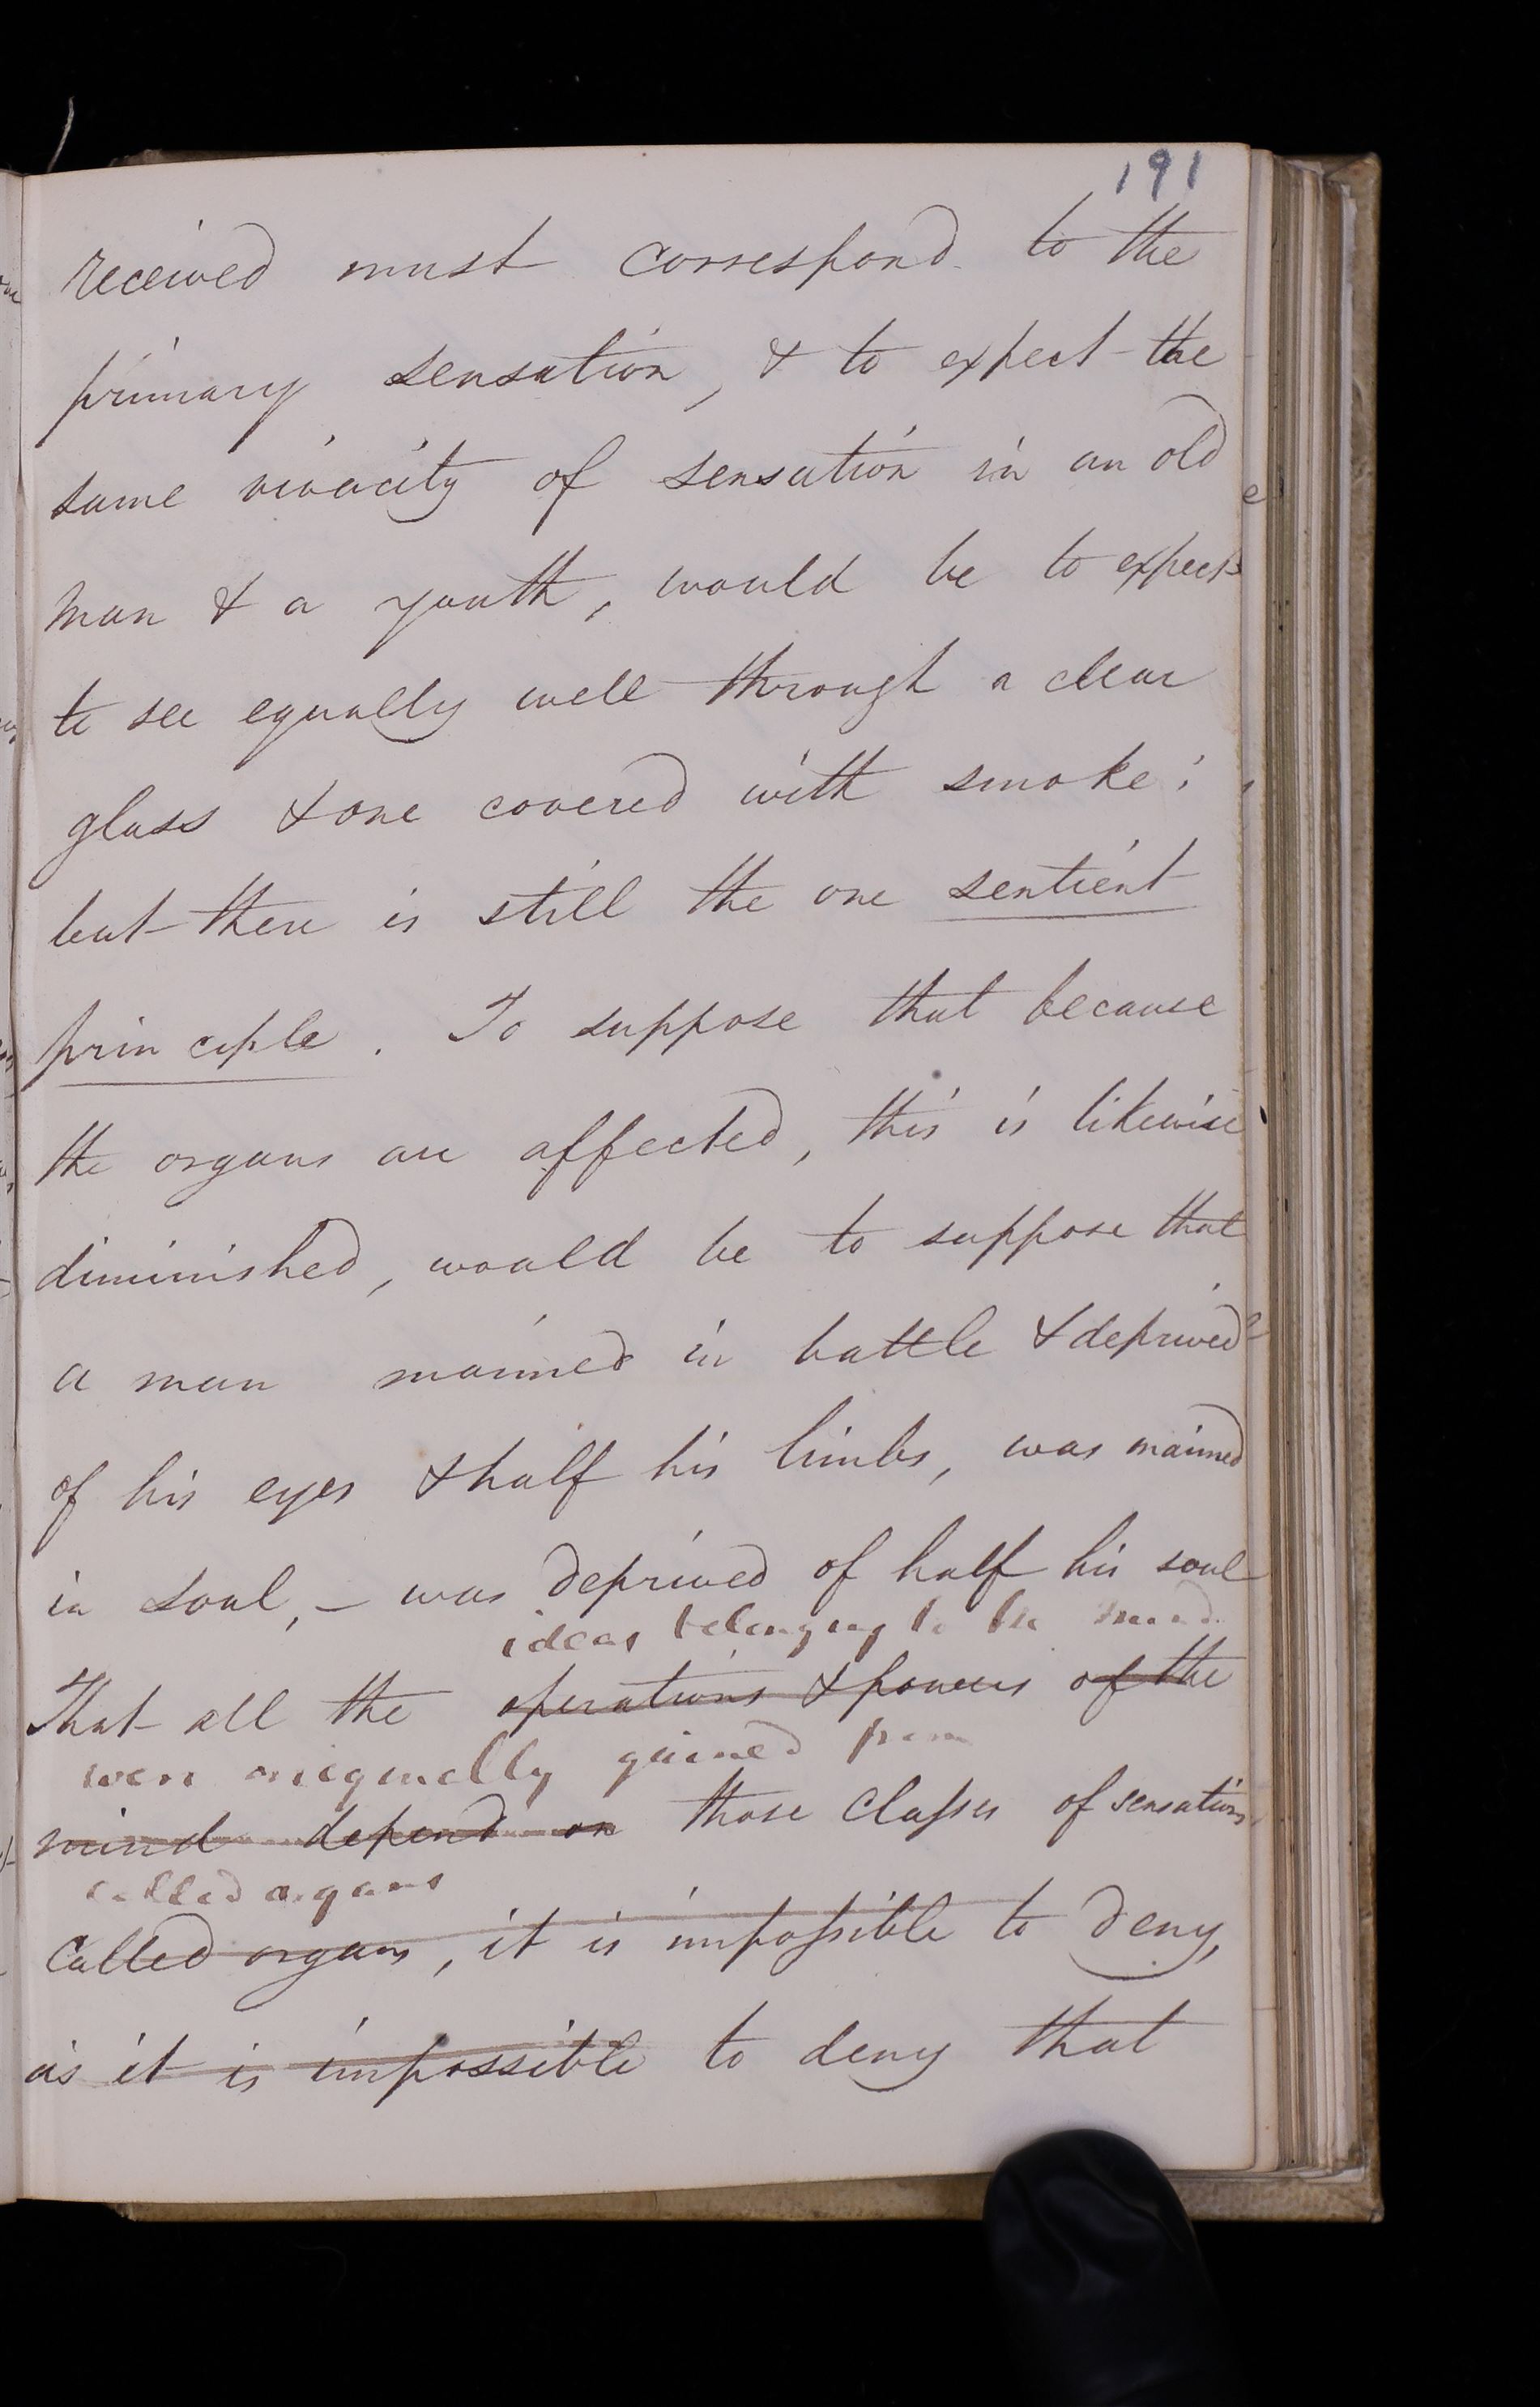 191
received must correspond to the
primary sensation, & to expect the
same vivacity of sensation in an old
man & a youth, would be to expect
to see equally well through a clear
glass & one covered with smoke;
but there is still the one sentient
principle. To suppose that because
the organs are affected, this is likewise
diminished, would be to suppose that
a man maimed in battle & deprived
of his eyes & half his limbs, was maimed
in soul, – was deprived of half his soul
ideas belonging to the mind
That all the operations & powers of the
were origenally gained from
mind depend on those Classes of sensations
called organs
called organs, it is impossible to deny,
as it is impossible to deny that